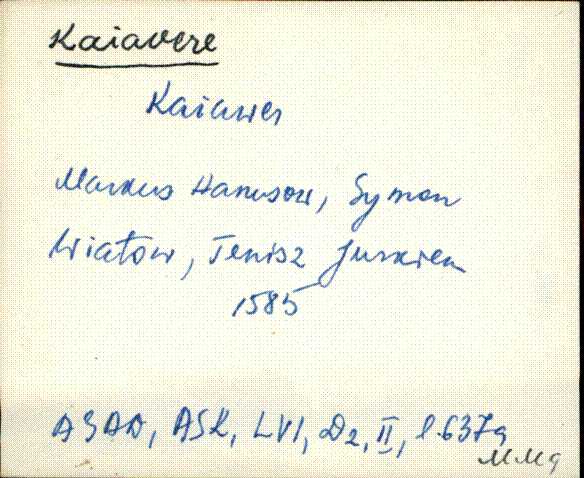 Kaiavere
Kaiawer
Markus Hanusow, Symon
Wiatow, Tenisz
1585
ASK, LVI, D2, II, l. 637a
MMg